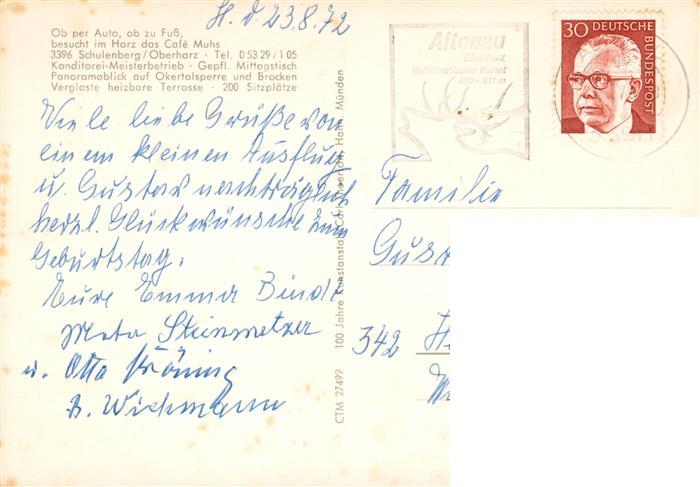 H. d. 23.8.72
Ob per Auto, ob zu Fuß,
besucht im Harz das Café Muhs
3396 Schulenberg/Oberharz · Tel. 0 53 29 / 1 05
Konditorei-Meisterbetrieb · Gepfl. Mittagstisch
Panoramablick auf Okertalsperre und Brocken
Verglaste heizbare Terrasse · 200 Sitzplätze
Viele liebe Grüße von
einem kleinen Ausflug
u. Gustav nachträglich
herzl. Glückwünsche zum
Geburtstag.
Eure Emma Bindt
Meta Steinmetzer
u. Otto Kröning
B. Wichmann
CTM 27499 100 Jahre Kunstanstalt Carl Thoericht, Hann. Münden
Altenau
Oberharz
Heilklimatischer Kurort
450 - 811 m
30 DEUTSCHE
BUNDESPOST
Familie
Gus
342 H